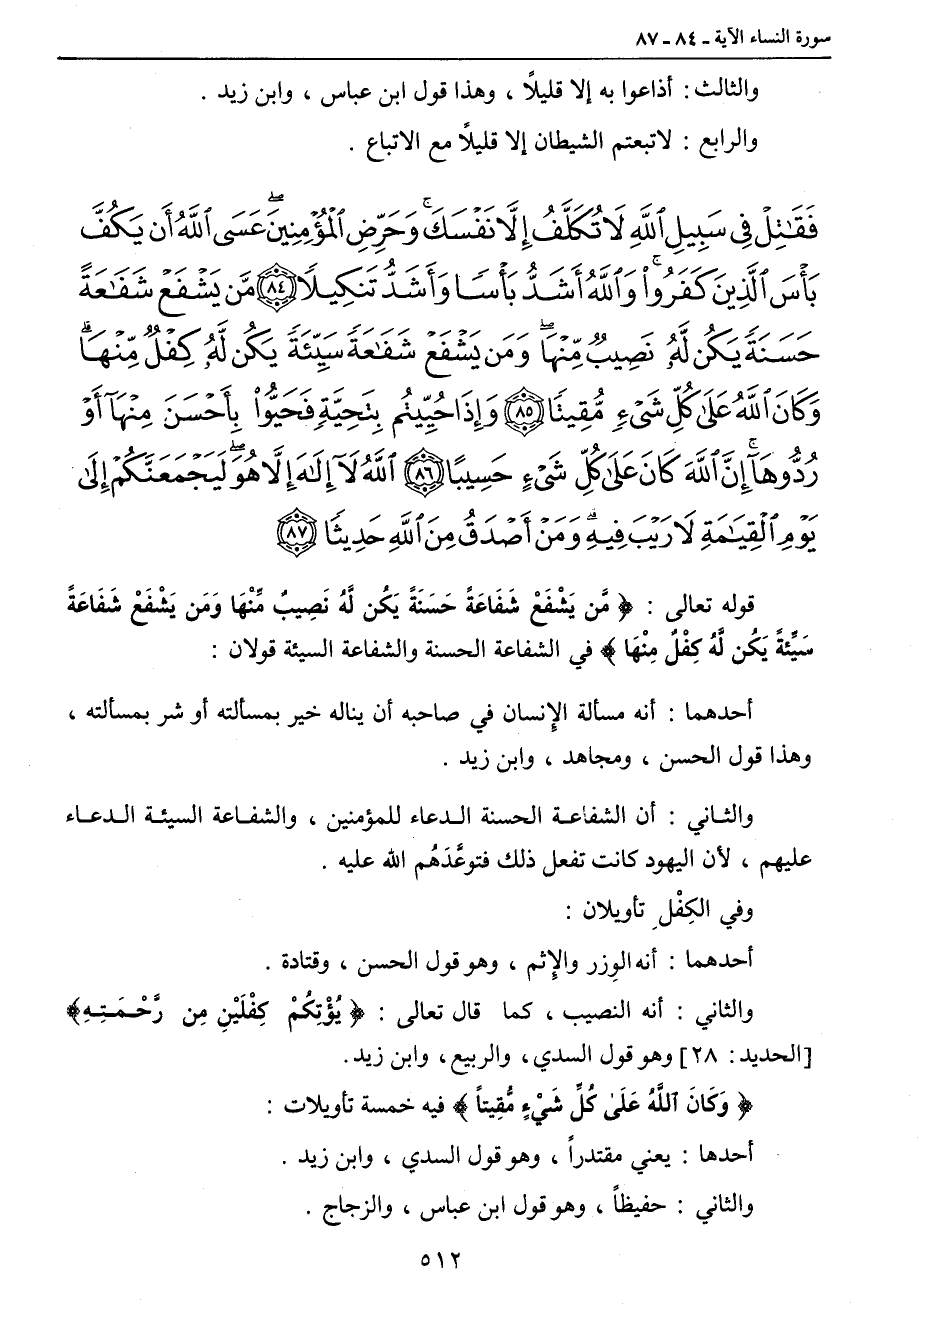 سورة النساء الآية ـ ٨٤ ـ ٨٧
والثالث : أذاعوا به إلا قليلاً ، وهذا قول ابن عباس ، وابن زيد .
والرابع : لاتبعتم الشيطان إلا قليلاً مع الاتباع .
فَقَٰتِلْ فِى سَبِيلِ ٱللَّهِ لَا تُكَلَّفُ إِلَّا نَفْسَكَ ۚ وَحَرِّضِ ٱلْمُؤْمِنِينَ ۖ عَسَى ٱللَّهُ أَن يَكُفَّ
بَأْسَ ٱلَّذِينَ كَفَرُوا۟ ۚ وَٱللَّهُ أَشَدُّ بَأْسًا وَأَشَدُّ تَنكِيلًا ﴿٨٤﴾ مَّن يَشْفَعْ شَفَٰعَةً
حَسَنَةً يَكُن لَّهُۥ نَصِيبٌ مِّنْهَا ۖ وَمَن يَشْفَعْ شَفَٰعَةً سَيِّئَةً يَكُن لَّهُۥ كِفْلٌ مِّنْهَا ۗ
وَكَانَ ٱللَّهُ عَلَىٰ كُلِّ شَىْءٍ مُّقِيتًا ﴿٨٥﴾ وَإِذَا حُيِّيتُم بِتَحِيَّةٍ فَحَيُّوا۟ بِأَحْسَنَ مِنْهَآ أَوْ
رُدُّوهَآ ۗ إِنَّ ٱللَّهَ كَانَ عَلَىٰ كُلِّ شَىْءٍ حَسِيبًا ﴿٨٦﴾ ٱللَّهُ لَآ إِلَٰهَ إِلَّا هُوَ ۚ لَيَجْمَعَنَّكُمْ إِلَىٰ
يَوْمِ ٱلْقِيَٰمَةِ لَا رَيْبَ فِيهِ ۗ وَمَنْ أَصْدَقُ مِنَ ٱللَّهِ حَدِيثًا ﴿٨٧﴾
قوله تعالى : ﴿ مَّن يَشْفَعْ شَفَاعَةً حَسَنَةً يَكُن لَّهُ نَصِيبٌ مِّنْهَا وَمَن يَشْفَعْ شَفَاعَةً
سَيِّئَةً يَكُن لَّهُ كِفْلٌ مِنْهَا ﴾ في الشفاعة الحسنة والشفاعة السيئة قولان :
أحدهما : أنه مسألة الإنسان في صاحبه أن يناله خير بمسألته أو شر بمسألته ،
وهذا قول الحسن ، ومجاهد ، وابن زيد .
والثاني : أن الشفاعة الحسنة الدعاء للمؤمنين ، والشفاعة السيئة الدعاء
عليهم ، لأن اليهود كانت تفعل ذلك فتوعَّدَهُم الله عليه .
وفي الكِفْلِ تأويلان :
أحدهما : أنه الوِزر والإثم ، وهو قول الحسن ، وقتادة .
والثاني : أنه النصيب ، كما قال تعالى : ﴿ يُؤْتِكُمْ كِفْلَيْنِ مِن رَّحْمَتِهِ﴾
[الحديد: ٢٨] وهو قول السدي، والربيع، وابن زيد.
﴿ وَكَانَ ٱللَّهُ عَلَىٰ كُلِّ شَيْءٍ مُّقِيتاً ﴾ فيه خمسة تأويلات :
أحدها : يعني مقتدراً ، وهو قول السدي ، وابن زيد .
والثاني : حفيظاً ، وهو قول ابن عباس ، والزجاج .
٥١٢